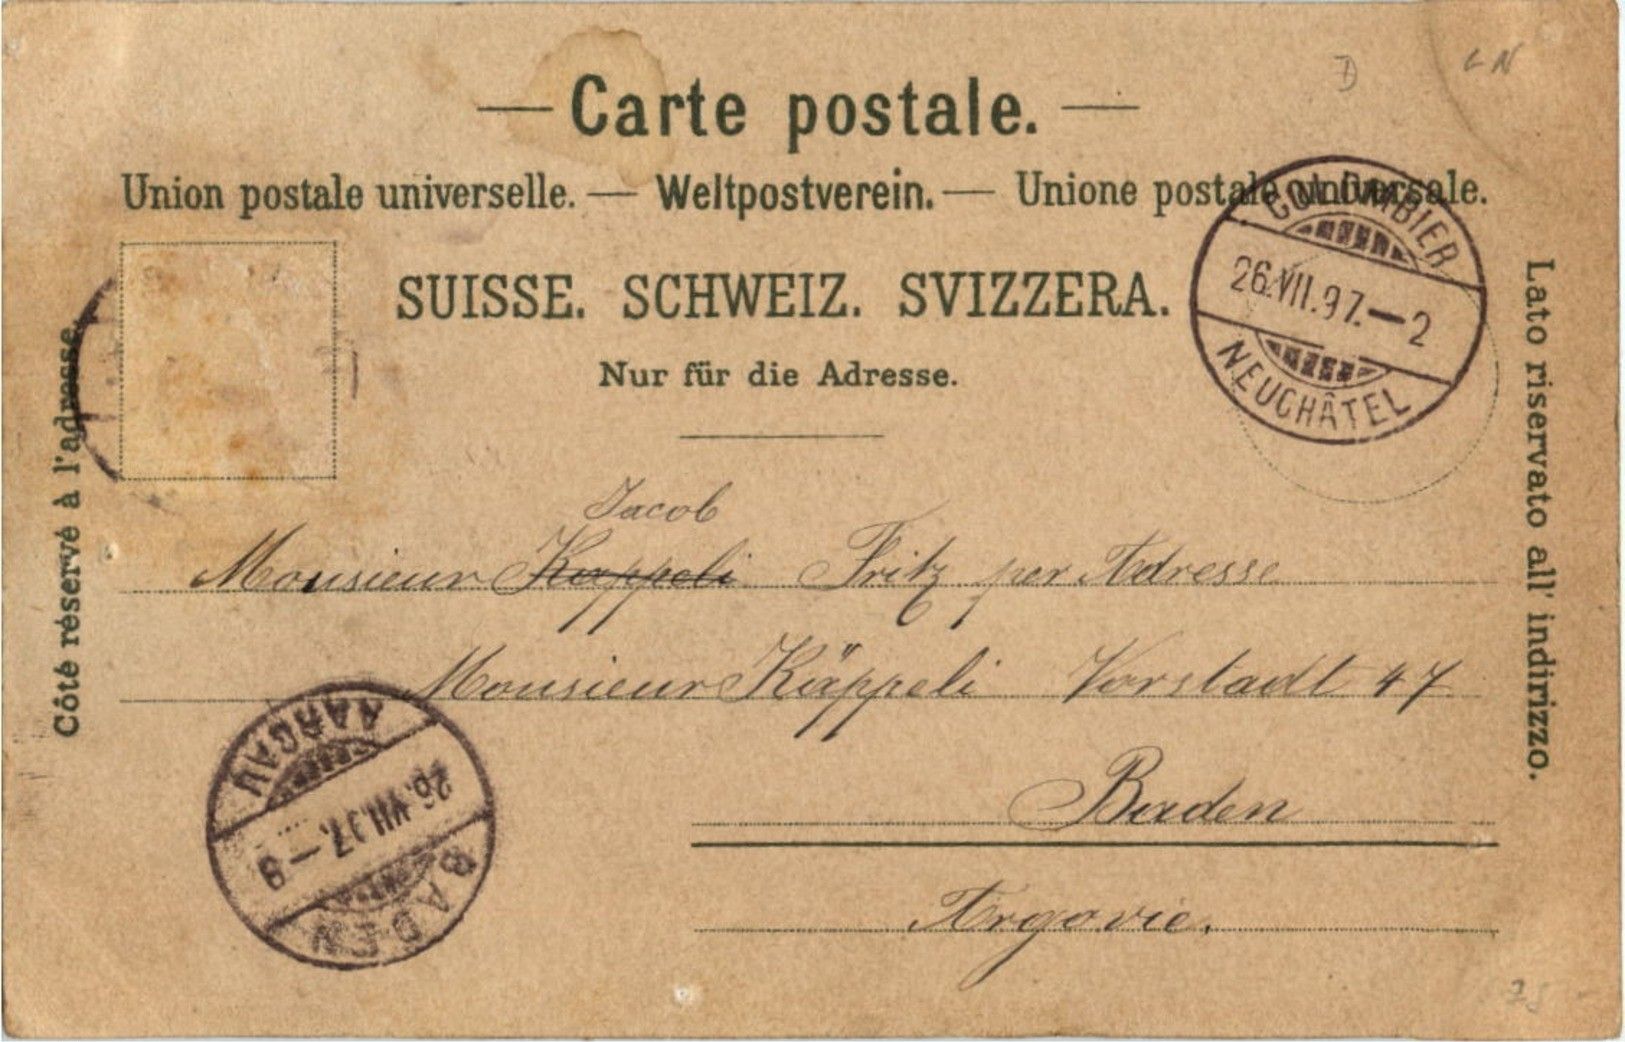 Carte postale.
Union postale universelle. — Weltpostverein. — Unione postale universale.
SUISSE. SCHWEIZ. SVIZZERA.
Nur für die Adresse.
Côté réservé à l'adresse.
Lato riservato all' indirizzo.
COLOMBIER
26.VII.97.—2
NEUCHÂTEL
Jacob
Monsieur Kappeli Fritz per Adresse
Monsieur Käppeli Vorstadt 47
Baden
Argovie.
BADEN
26.VII.97.—8
AARGAU